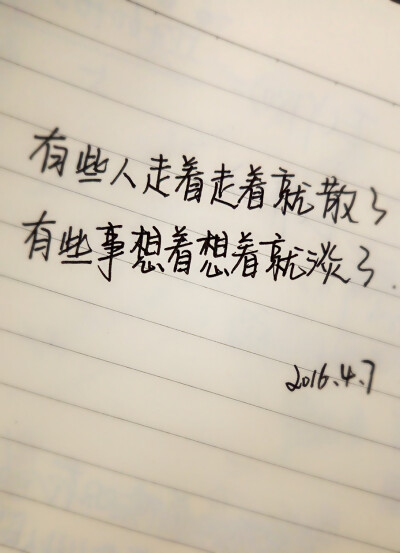 有些人走着走着就散了
有些事想着想着就淡了.
2016.4.7